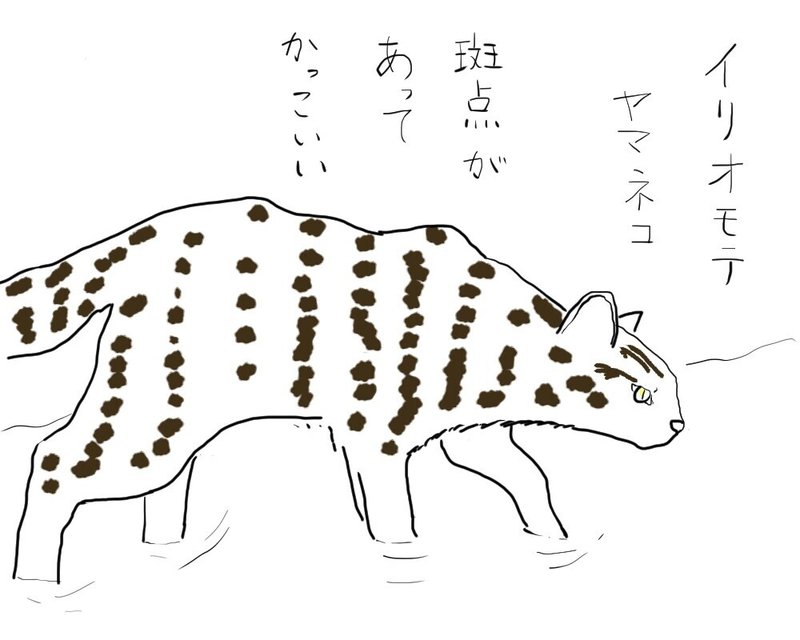 イリオモテ
ヤマネコ
斑点が
あって
かっこいい